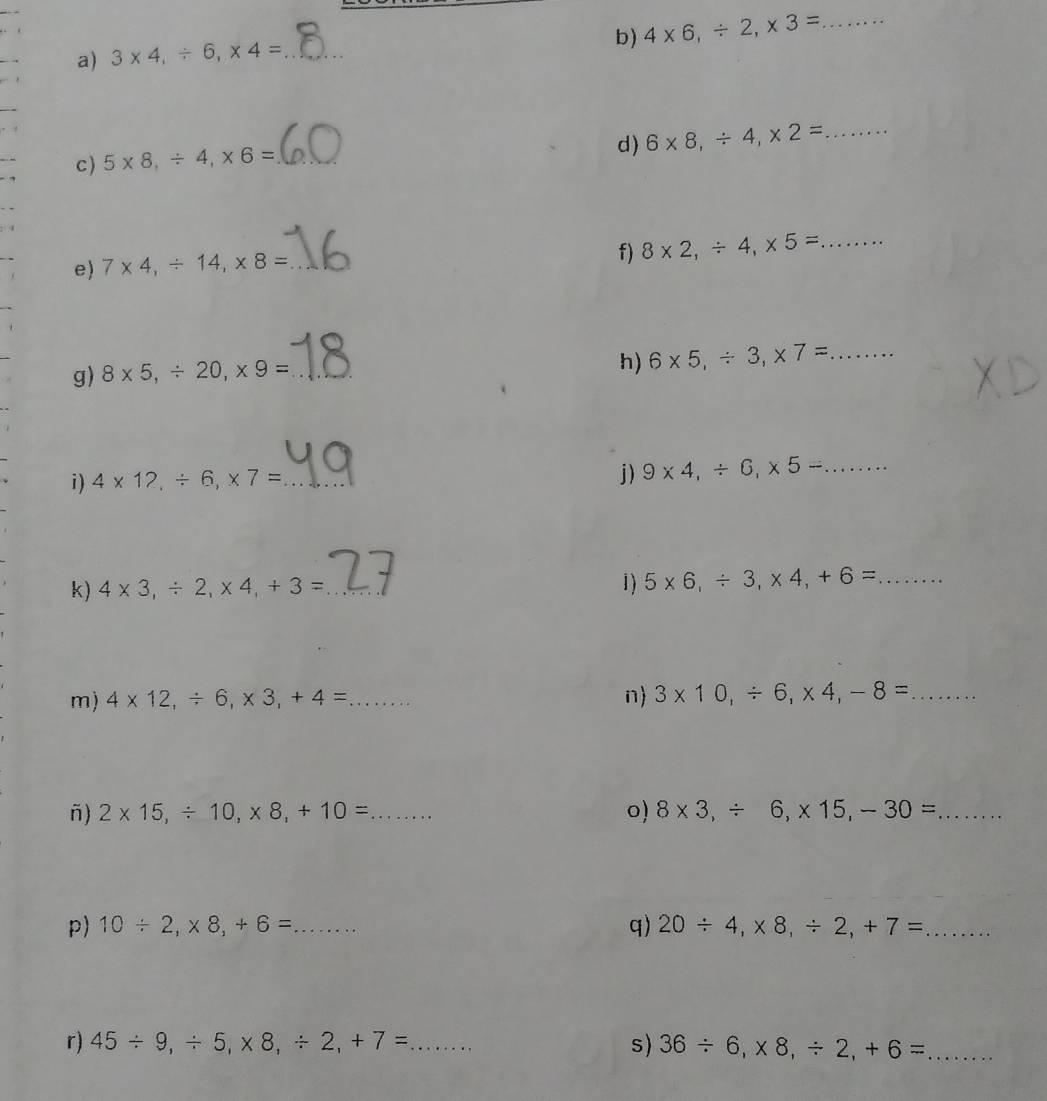 a) 3 × 4, ÷ 6, × 4 =..8...
b) 4 × 6, ÷ 2, × 3 =........
c) 5 × 8, ÷ 4, × 6 =.60.
d) 6 × 8, ÷ 4, × 2 =........
e) 7 × 4, ÷ 14, × 8 =...16
f) 8 × 2, ÷ 4, × 5 =........
g) 8 × 5, ÷ 20, × 9 =..18.
h) 6 × 5, ÷ 3, × 7 =........
XD
i) 4 × 12, ÷ 6, × 7 =...49
j) 9 × 4, ÷ 6, × 5 =........
k) 4 × 3, ÷ 2, × 4, + 3 =..27
i) 5 × 6, ÷ 3, × 4, + 6 =........
m) 4 × 12, ÷ 6, × 3, + 4 =........
n) 3 × 1 0, ÷ 6, × 4, – 8 =........
ñ) 2 × 15, ÷ 10, × 8, + 10 =........
o) 8 × 3, ÷ 6, × 15, – 30 =........
p) 10 ÷ 2, × 8, + 6 =........
q) 20 ÷ 4, × 8, ÷ 2, + 7 =........
r) 45 ÷ 9, ÷ 5, × 8, ÷ 2, + 7 =........
s) 36 ÷ 6, × 8, ÷ 2, + 6 =........